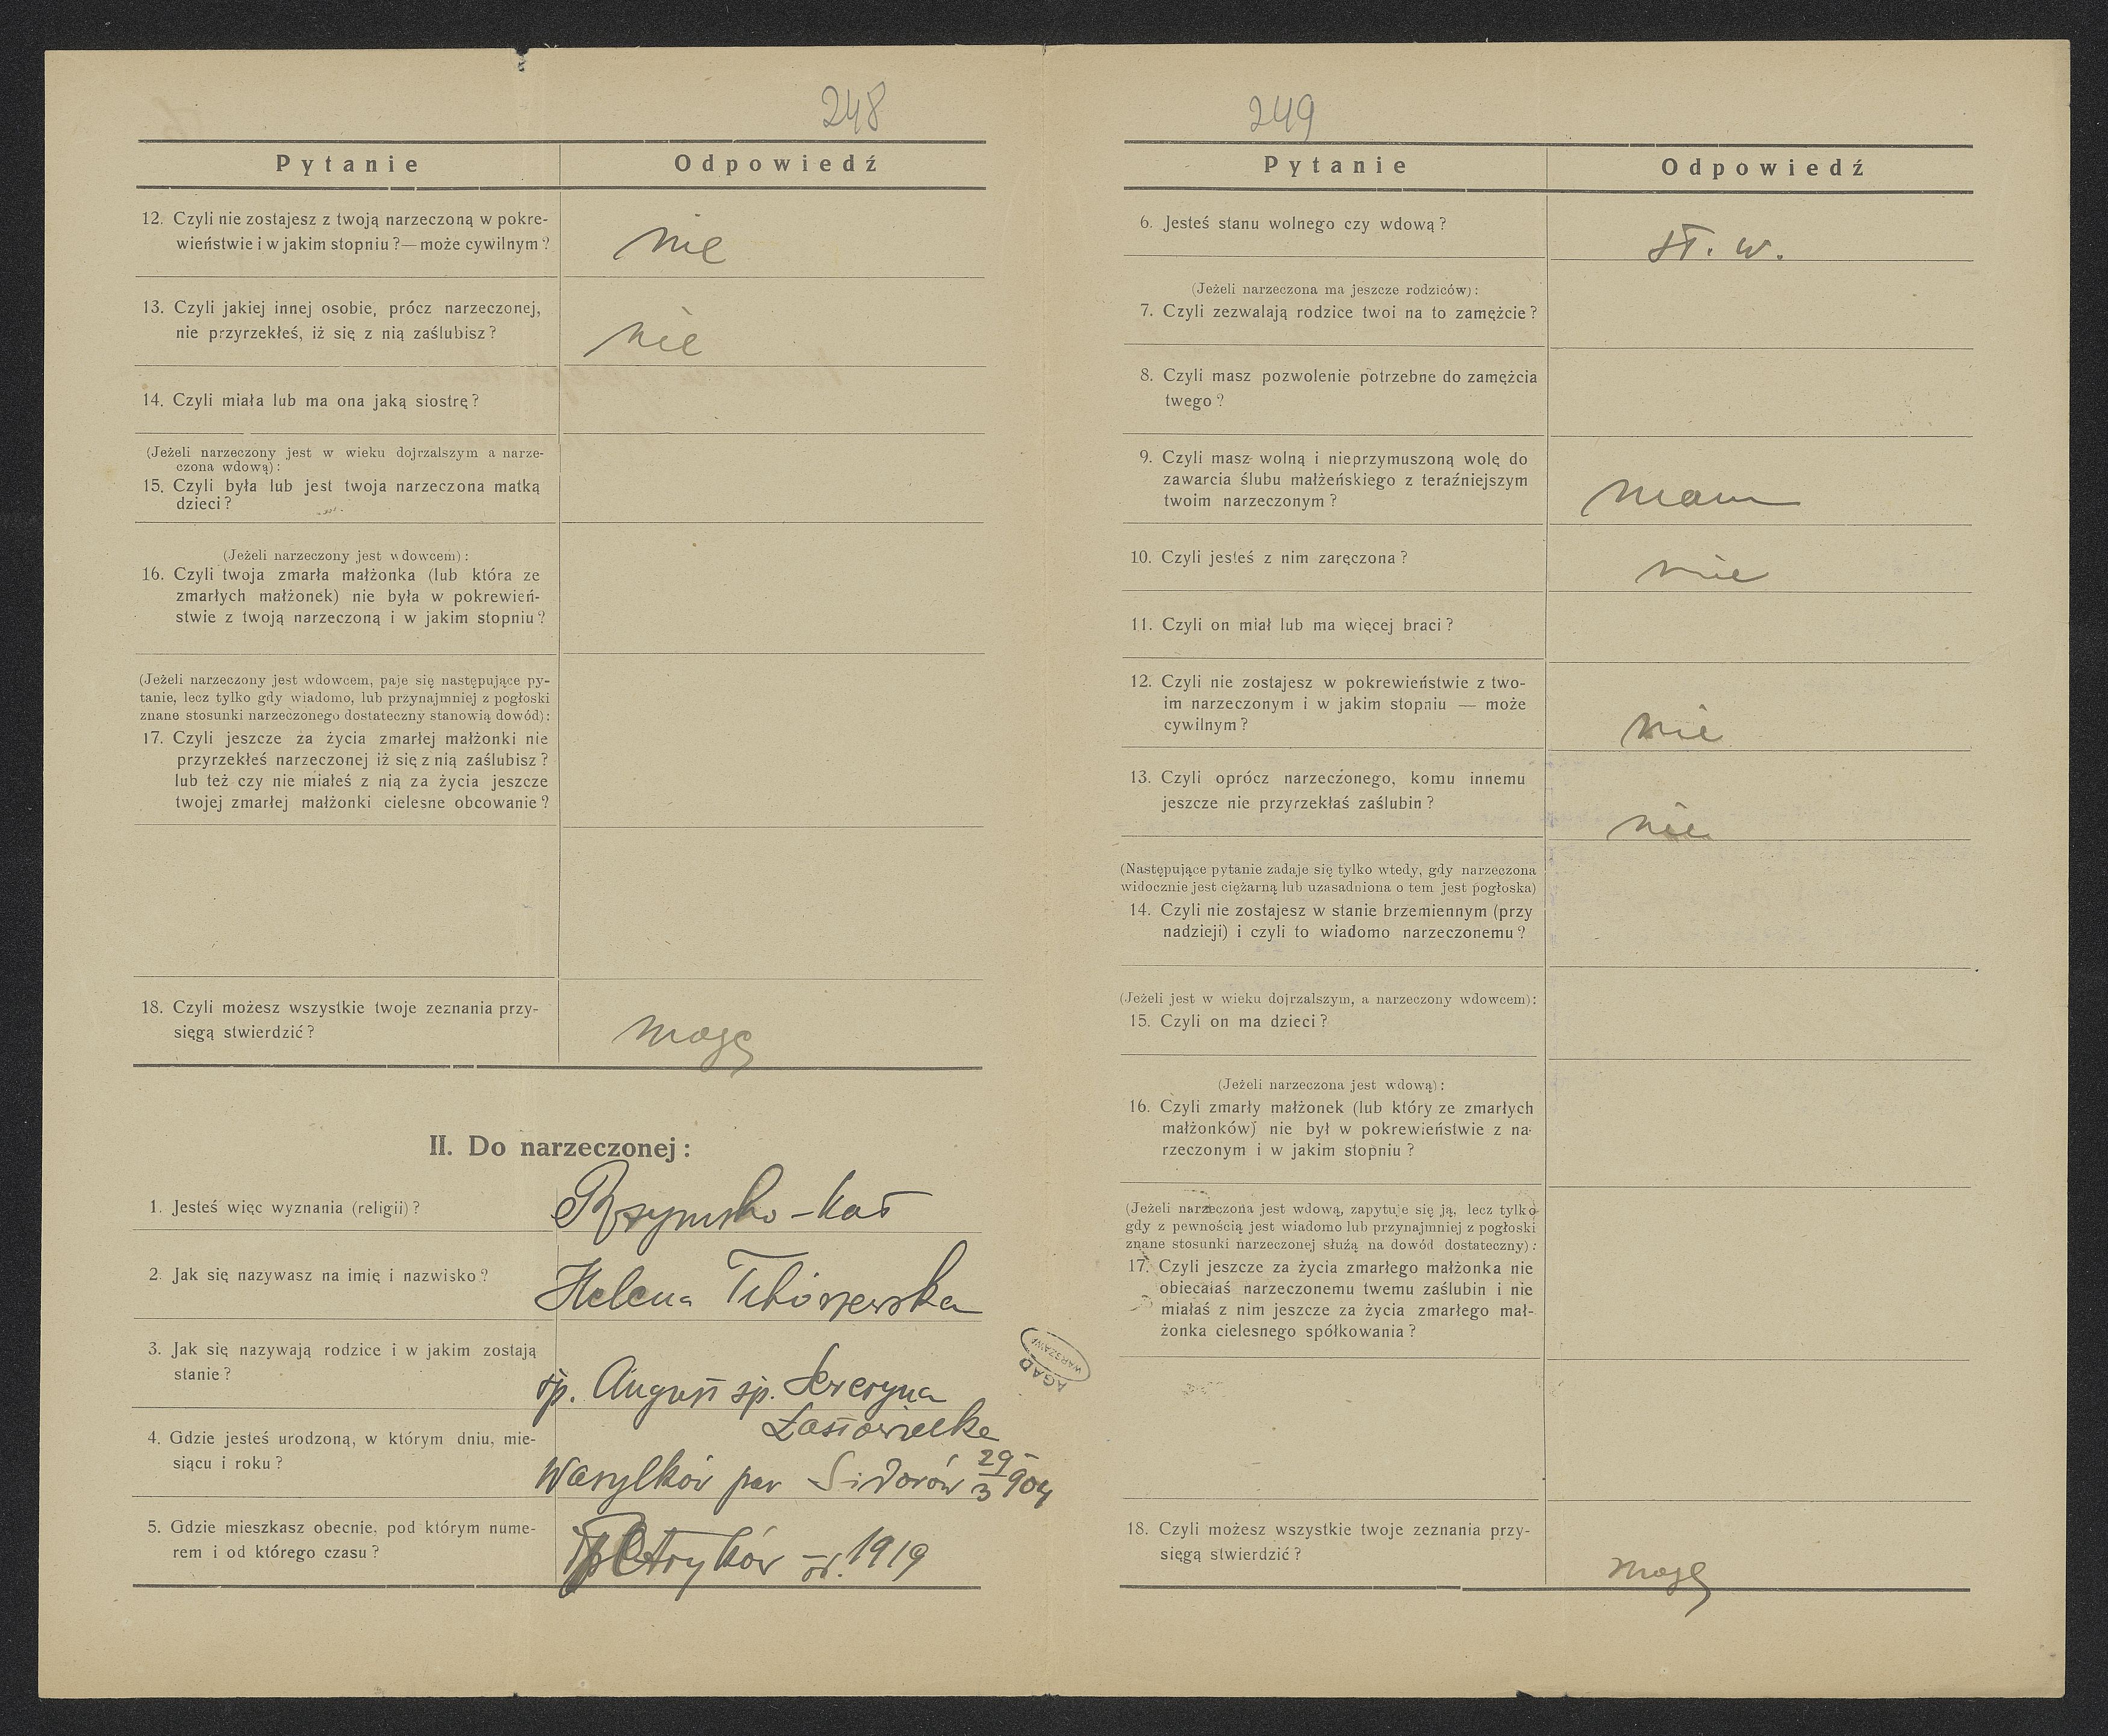 248
Pytanie
Odpowiedź
12. Czyli nie zostajesz z twoją narzeczoną w pokre-
wieństwie i w jakim stopniu ?—może cywilnym ?
nie
13. Czyli jakiej innej osobie, prócz narzeczonej,
nie przyrzekłeś, iż się z nią zaślubisz ?
nie
14. Czyli miała lub ma ona jaką siostrę ?
(Jeżeli narzeczony jest w wieku dojrzalszym a narze-
czona wdową) :
15. Czyli była lub jest twoja narzeczona matką
dzieci ?
(Jeżeli narzeczony jest wdowcem) :
16. Czyli twoja zmarła małżonka (lub która ze
zmarłych małżonek) nie była w pokrewień-
stwie z twoją narzeczoną i w jakim stopniu ?
(Jeżeli narzeczony jest wdowcem, paje się następujące py-
tanie, lecz tylko gdy wiadomo, lub przynajmniej z pogłoski
znane stosunki narzeczonego dostateczny stanowią dowód) :
17. Czyli jeszcze za życia zmarłej małżonki nie
przyrzekłeś narzeczonej iż się z nią zaślubisz ?
lub też czy nie miałeś z nią za życia jeszcze
twojej zmarłej małżonki cielesne obcowanie ?
18. Czyli możesz wszystkie twoje zeznania przy-
sięgą stwierdzić ?
mogę
II. Do narzeczonej :
1. Jesteś więc wyznania (religii) ?
Rzymsko-kat
2. Jak się nazywasz na imię i nazwisko ?
Helena
3. Jak się nazywają rodzice i w jakim zostają
stanie ?
śp. August śp. Seweryna
4. Gdzie jesteś urodzoną, w którym dniu, mie-
siącu i roku ?
Wasylków par Sidorów 29/3 904
5. Gdzie mieszkasz obecnie, pod którym nume-
rem i od którego czasu ?
Petryków od. 1919
AGAD
WARSZAWA
249
Pytanie
Odpowiedź
6. Jesteś stanu wolnego czy wdową ?
st. w.
(Jeżeli narzeczona ma jeszcze rodziców) :
7. Czyli zezwalają rodzice twoi na to zamężcie ?
8. Czyli masz pozwolenie potrzebne do zamężcia
twego ?
9. Czyli masz wolną i nieprzymuszoną wolę do
zawarcia ślubu małżeńskiego z teraźniejszym
twoim narzeczonym ?
mam
10. Czyli jesteś z nim zaręczona ?
nie
11. Czyli on miał lub ma więcej braci ?
12. Czyli nie zostajesz w pokrewieństwie z two-
im narzeczonym i w jakim stopniu — może
cywilnym ?
nie
13. Czyli oprócz narzeczonego, komu innemu
jeszcze nie przyrzekłaś zaślubin ?
nie
(Następujące pytanie zadaje się tylko wtedy, gdy narzeczona
widocznie jest ciężarną lub uzasadniona o tem jest pogłoska)
14. Czyli nie zostajesz w stanie brzemiennym (przy
nadzieji) i czyli to wiadomo narzeczonemu ?
(Jeżeli jest w wieku dojrzalszym, a narzeczony wdowcem) :
15. Czyli on ma dzieci ?
(Jeżeli narzeczona jest wdową) :
16. Czyli zmarły małżonek (lub który ze zmarłych
małżonków) nie był w pokrewieństwie z na-
rzeczonym i w jakim stopniu ?
(Jeżeli narzeczona jest wdową, zapytuje się ją, lecz tylko
gdy z pewnością jest wiadomo lub przynajmniej z pogłoski
znane stosunki narzeczonej służą na dowód dostateczny) :
17. Czyli jeszcze za życia zmarłego małżonka nie
obiecałaś narzeczonemu twemu zaślubin i nie
miałaś z nim jeszcze za życia zmarłego mał-
żonka cielesnego spółkowania ?
18. Czyli możesz wszystkie twoje zeznania przy-
sięgą stwierdzić ?
mogę